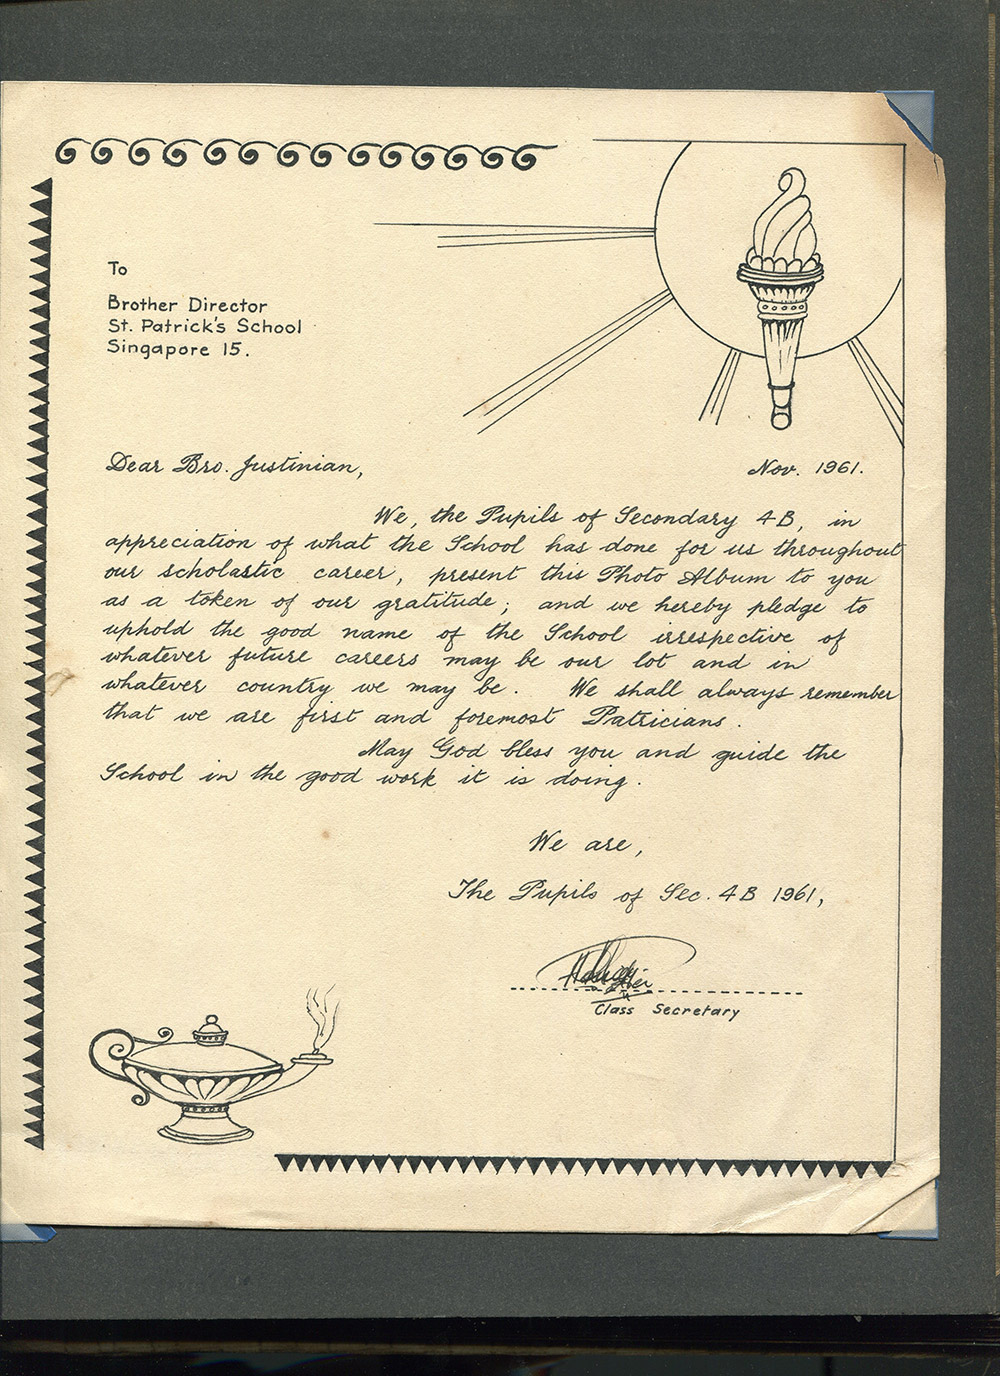 To
Brother Director
St. Patrick's School
Singapore 15.
Dear Bro. Justinian,
Nov. 1961.
We, the Pupils of Secondary 4B, in
appreciation of what the School has done for us throughout
our scholastic career, present this Photo Album to you
as a token of our gratitude; and we hereby pledge to
uphold the good name of the School irrespective of
whatever future careers may be our lot and in
whatever country we may be. We shall always remember
that we are first and foremost Patricians.
May God bless you and guide the
School in the good work it is doing.
We are,
The Pupils of Sec. 4B 1961,
Class Secretary